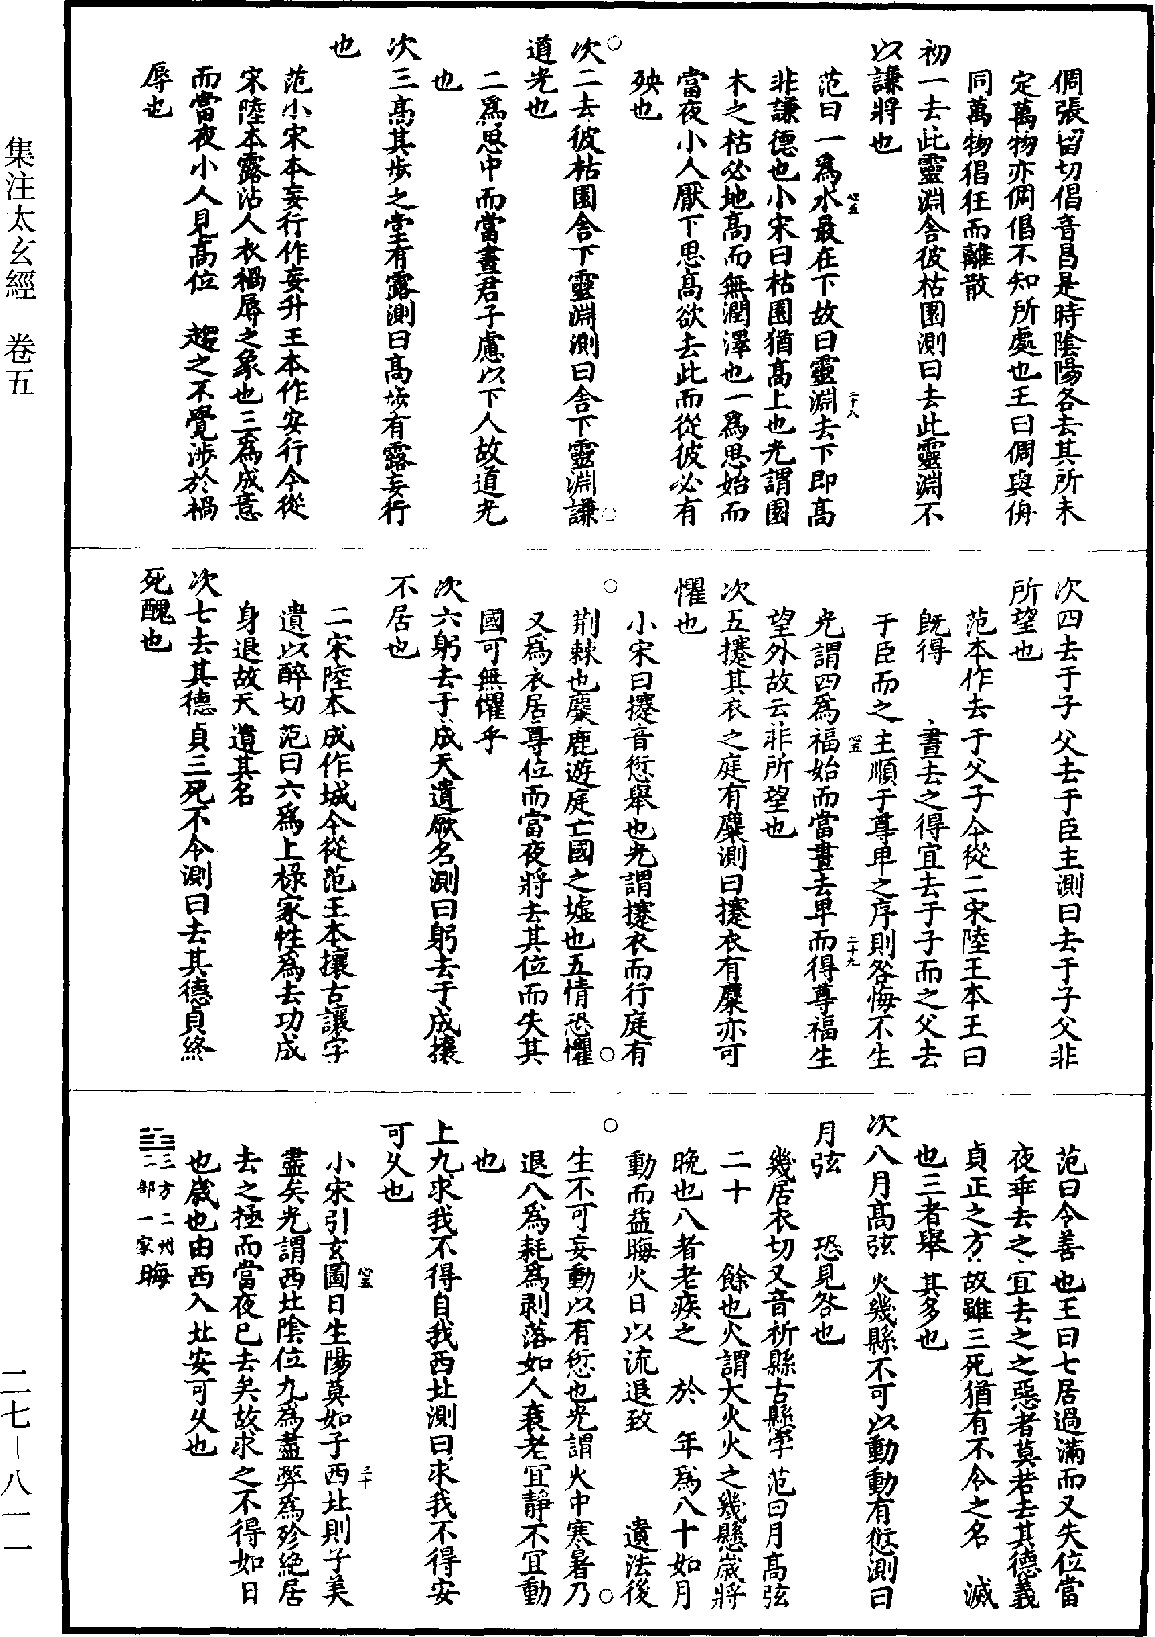 集注太玄經　卷五
倜張留切倡音昌是時陰陽各去其所未
定萬物亦倜倡不知所處也王曰倜與侜
同萬物猖狂而離散
初一去此靈淵舍彼枯園測曰去此靈淵不
以謙將也
范曰一爲水最在下故曰靈淵去下即高
非謙德也小宋曰枯園猶高上也光謂園
木之枯必地高而無潤澤也一爲思始而
當夜小人厭下思高欲去此而從彼必有
殃也
次二去彼枯園舍下靈淵測曰舍下靈淵謙
道光也
二爲思中而當晝君子慮以下人故道光
也
次三高其步之堂有露測曰高步有露妄行
也
范小宋本妄行作妄升王本作安行今從
宋陸本露沾人衣禍辱之象也三爲成意
而當夜小人見高位　趨之不覺涉於禍
辱也
次四去于子父去于臣主測曰去于子父非
所望也
范本作去于父子今從二宋陸王本王曰
既得　晝去之得宜去于子而之父去
于臣而之主順于尊卑之序則咎悔不生
光謂四爲福始而當晝去卑而得尊福生
望外故云非所望也
次五攓其衣之庭有麋測曰攓衣有麋亦可
懼也
小宋曰攓音愆舉也光謂攓衣而行庭有
荆棘也麋鹿遊庭亡國之墟也五情恐懼
又爲衣居尊位而當夜將去其位而失其
國可無懼乎
次六躬去于成天遺厥名測曰躬去于成攘
不居也
二宋陸本成作城今從范王本攘古讓字
遺以醉切范曰六爲上祿家性爲去功成
身退故天遺其名
次七去其德貞三死不令測曰去其德貞終
死醜也
范曰令善也王曰七居過滿而又失位當
夜乖去之宜去之之惡者莫若去其德義
貞正之方故雖三死猶有不令之名　滅
也三者舉其多也
次八月高弦火幾縣不可以動動有愆測曰
月弦　恐見咎也
幾居衣切又音祈縣古縣字范曰月高弦
二十　餘也火謂大火火之幾懸歲將
晚也八者老疾之　於　年爲八十如月
動而益晦火日以流退致　遺法後
生不可妄動以有愆也光謂火中寒暑乃
退八爲耗爲剥落如人衰老宜靜不宜動
也
上九求我不得自我西北測曰求我不得安
可久也
小宋引玄圖曰生陽莫如子西北則子美
盡矣光謂西北陰位九爲盡弊爲殄絶居
去之極而當夜已去矣故求之不得如日
也歲也由西入北安可久也
三方二州二部一家晦
二七—八一一